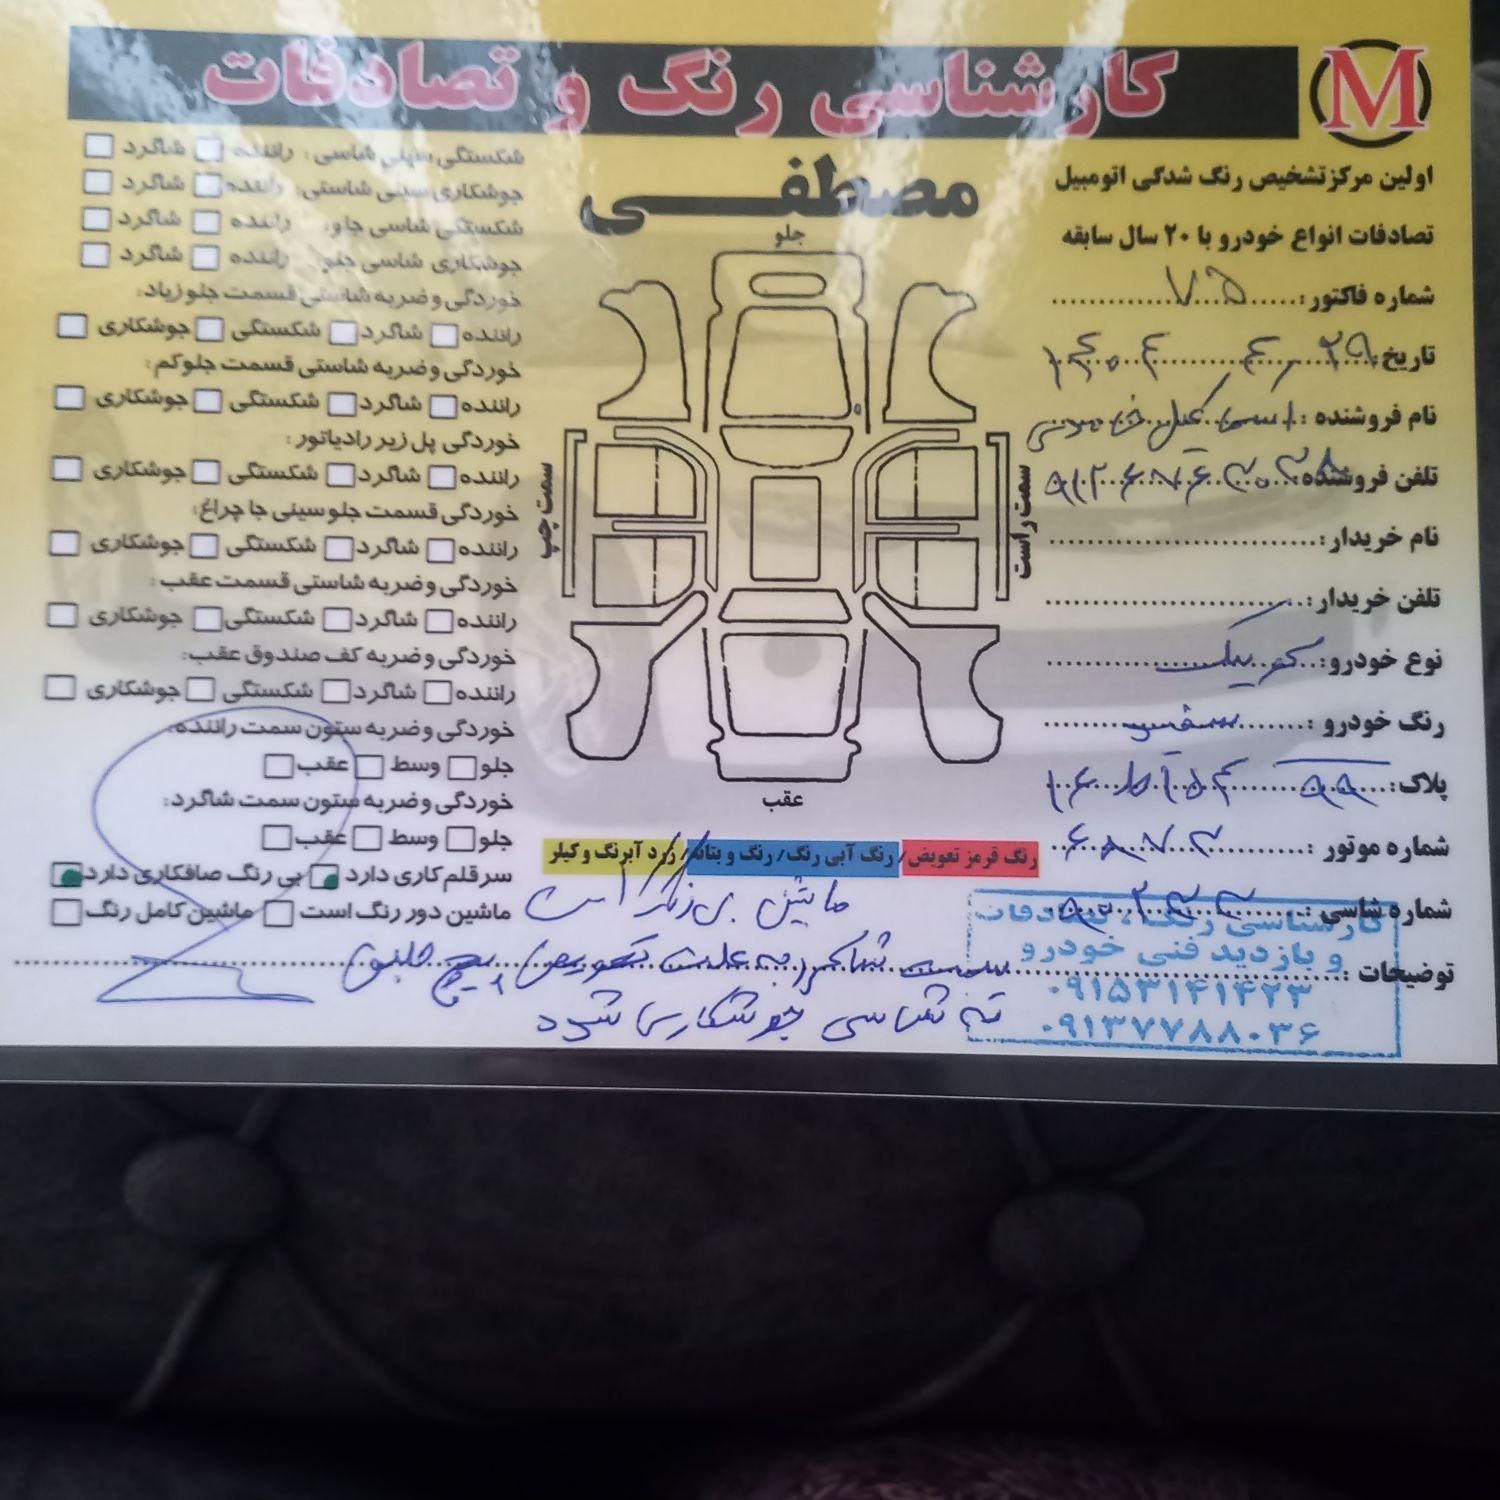 کارشناسی رنگ و تصادفات
M
مصطفی
اولین مرکز تشخیص رنگ شدگی اتومبیل
تصادفات انواع خودرو با ۲۰ سال سابقه
شماره فاکتور:
تاریخ: ۱۴۰۴ / ۴ / ۲۹
نام فروشنده:
تلفن فروشنده:
نام خریدار:
تلفن خریدار:
نوع خودرو: کوییک
رنگ خودرو: سفید
پلاک:
شماره موتور:
شماره شاسی:
جلو
سمت چپ
سمت راست
عقب
رنگ قرمز تعویض/ رنگ آبی رنگ/ رنگ و بتانه/ زرد آبرنگ و کیلر
شکستگی سینی شاسی: راننده شاگرد
جوشکاری سینی شاستی: راننده شاگرد
شکستگی شاسی جلو: راننده شاگرد
جوشکاری شاسی جلو: راننده شاگرد
خوردگی و ضربه شاستی قسمت جلو زیاد:
راننده شاگرد شکستگی جوشکاری
خوردگی و ضربه شاستی قسمت جلو کم:
راننده شاگرد شکستگی جوشکاری
خوردگی پل زیر رادیاتور:
راننده شاگرد شکستگی جوشکاری
خوردگی قسمت جلو سینی جا چراغ:
راننده شاگرد شکستگی جوشکاری
خوردگی و ضربه شاستی قسمت عقب:
راننده شاگرد شکستگی جوشکاری
خوردگی و ضربه کف صندوق عقب:
راننده شاگرد شکستگی جوشکاری
خوردگی و ضربه ستون سمت راننده:
جلو وسط عقب
خوردگی و ضربه ستون سمت شاگرد:
جلو وسط عقب
سر قلم کاری دارد بی رنگ صافکاری دارد
ماشین دور رنگ است ماشین کامل رنگ
ماشین بی رنگ است
توضیحات: سمت شاگرد به علت تعویض پیچ جلو
ته شاسی جوشکاری شود
کارشناسی رنگ، تصادفات
و بازدید فنی خودرو
۰۹۱۵۳۱۴۱۴۲۳
۰۹۱۳۷۷۸۸۰۳۶